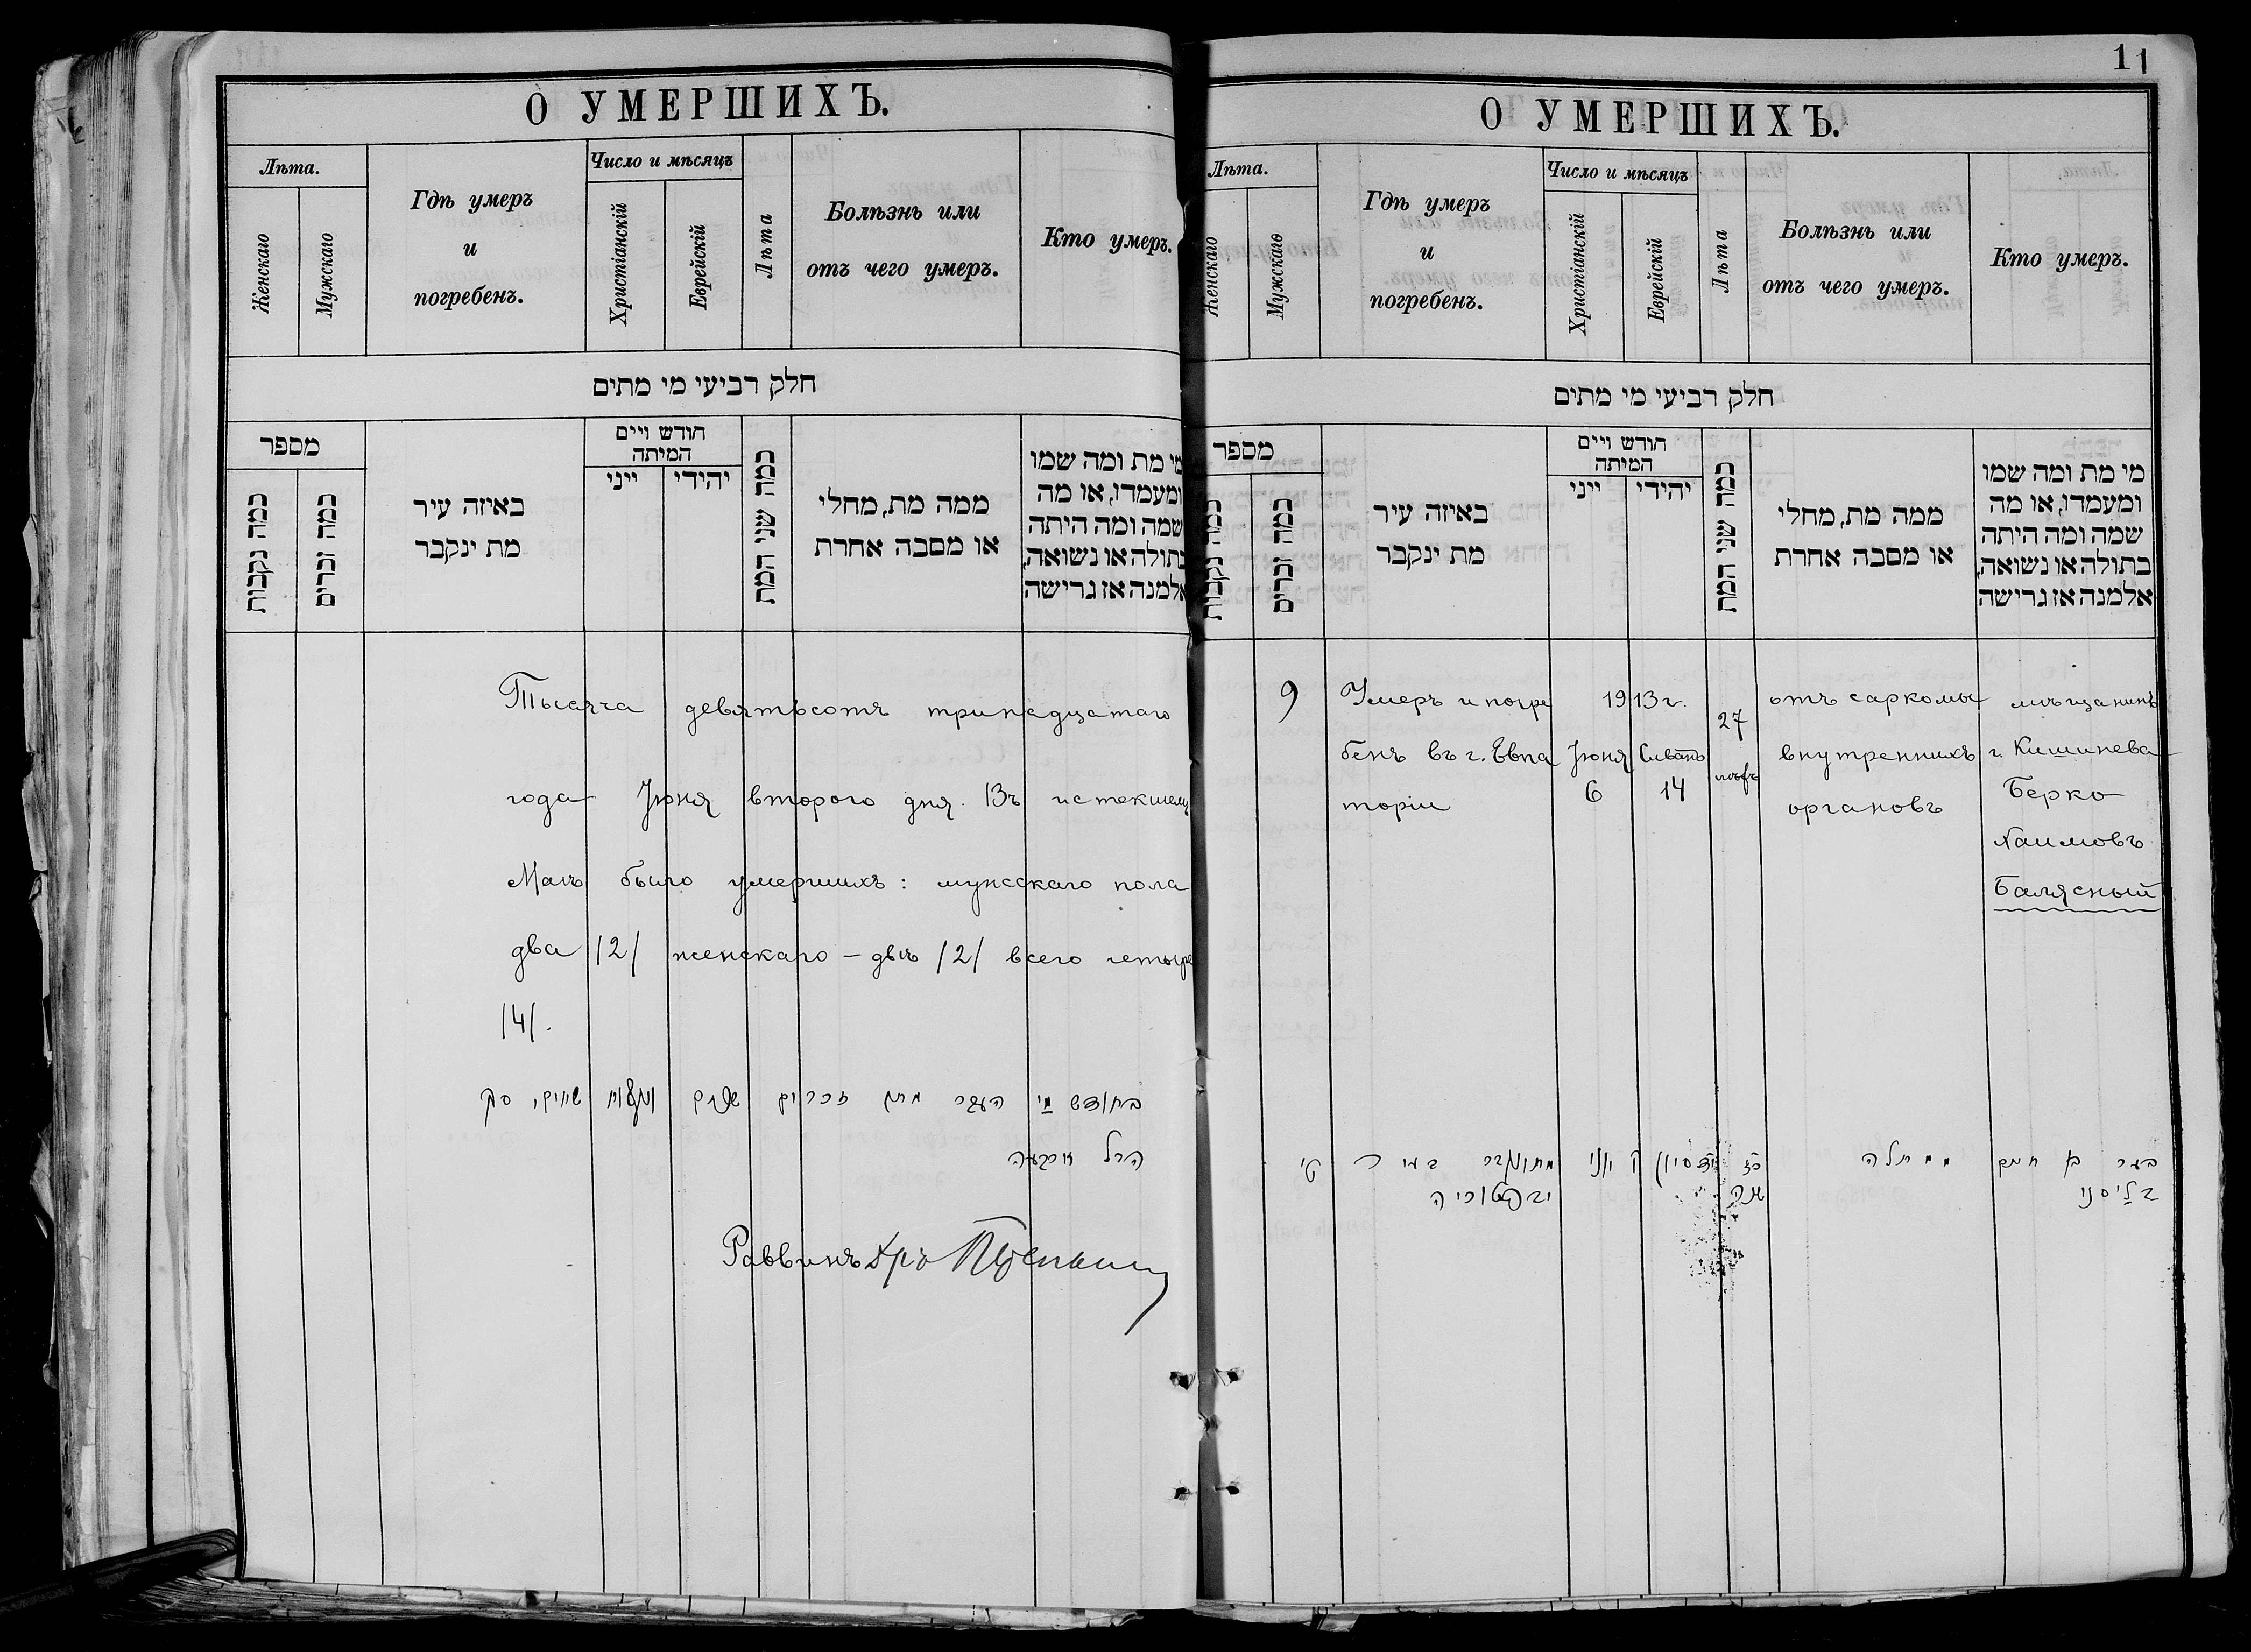 О УМЕРШИХЪ.
Лѣта.
Женскаго
Мужскаго
Гдѣ умеръ
и
погребенъ.
Число и мѣсяцъ
Христіанскій
Еврейскій
Лѣта
Болѣзнь или
отъ чего умеръ.
Кто умеръ.
חלק רביעי מי מתים
מספר
כמה נקבות
כמה זכרים
באיזה עיר
מת ינקבר
חודש ויים
המיתה
ייני
יהידי
כמה שני המת
ממה מת, מחלי
או מסבה אחרת
מי מת ומה שמו
ומעמדו, או מה
שמה ומה היתה
בתולה או נשואה,
אלמנה אז גרישה
Тысяча девятьсотъ тринадцатаго
года Іюня второго дня. Въ истекшемъ
Маѣ было умершихъ: мужскаго пола
два /2/ женскаго – двѣ /2/ всего четыре
/4/.
בחודש מי העבר מתו זכרים שנים ונקבות שתים, סך
הכל ארבעה
Раввинъ д-ръ
11
О УМЕРШИХЪ.
Лѣта.
Женскаго
Мужскаго
Гдѣ умеръ
и
погребенъ.
Число и мѣсяцъ
Христіанскій
Еврейскій
Лѣта
Болѣзнь или
отъ чего умеръ.
Кто умеръ.
חלק רביעי מי מתים
מספר
כמה נקבות
כמה זכרים
באיזה עיר
מת ינקבר
חודש ויים
המיתה
ייני
יהידי
כמה שני המת
ממה מת, מחלי
או מסבה אחרת
מי מת ומה שמו
ומעמדו, או מה
שמה ומה היתה
בתולה או נשואה,
אלמנה אז גרישה
9
Умеръ и погре
бенъ въ г. Евпа
торіи
1913 г.
Іюня
6
Сиванъ
14
27
лѣтъ
отъ саркомы
внутреннихъ
органовъ
мѣщанинъ
г. Кишинева
Берко
Хаимовъ
Балясный
טי
מת ונקבר בעיר
יבפטוריה
ו יוני
יד סיון
כז
שנה
ממחלה
בער בן חיים
בליסני